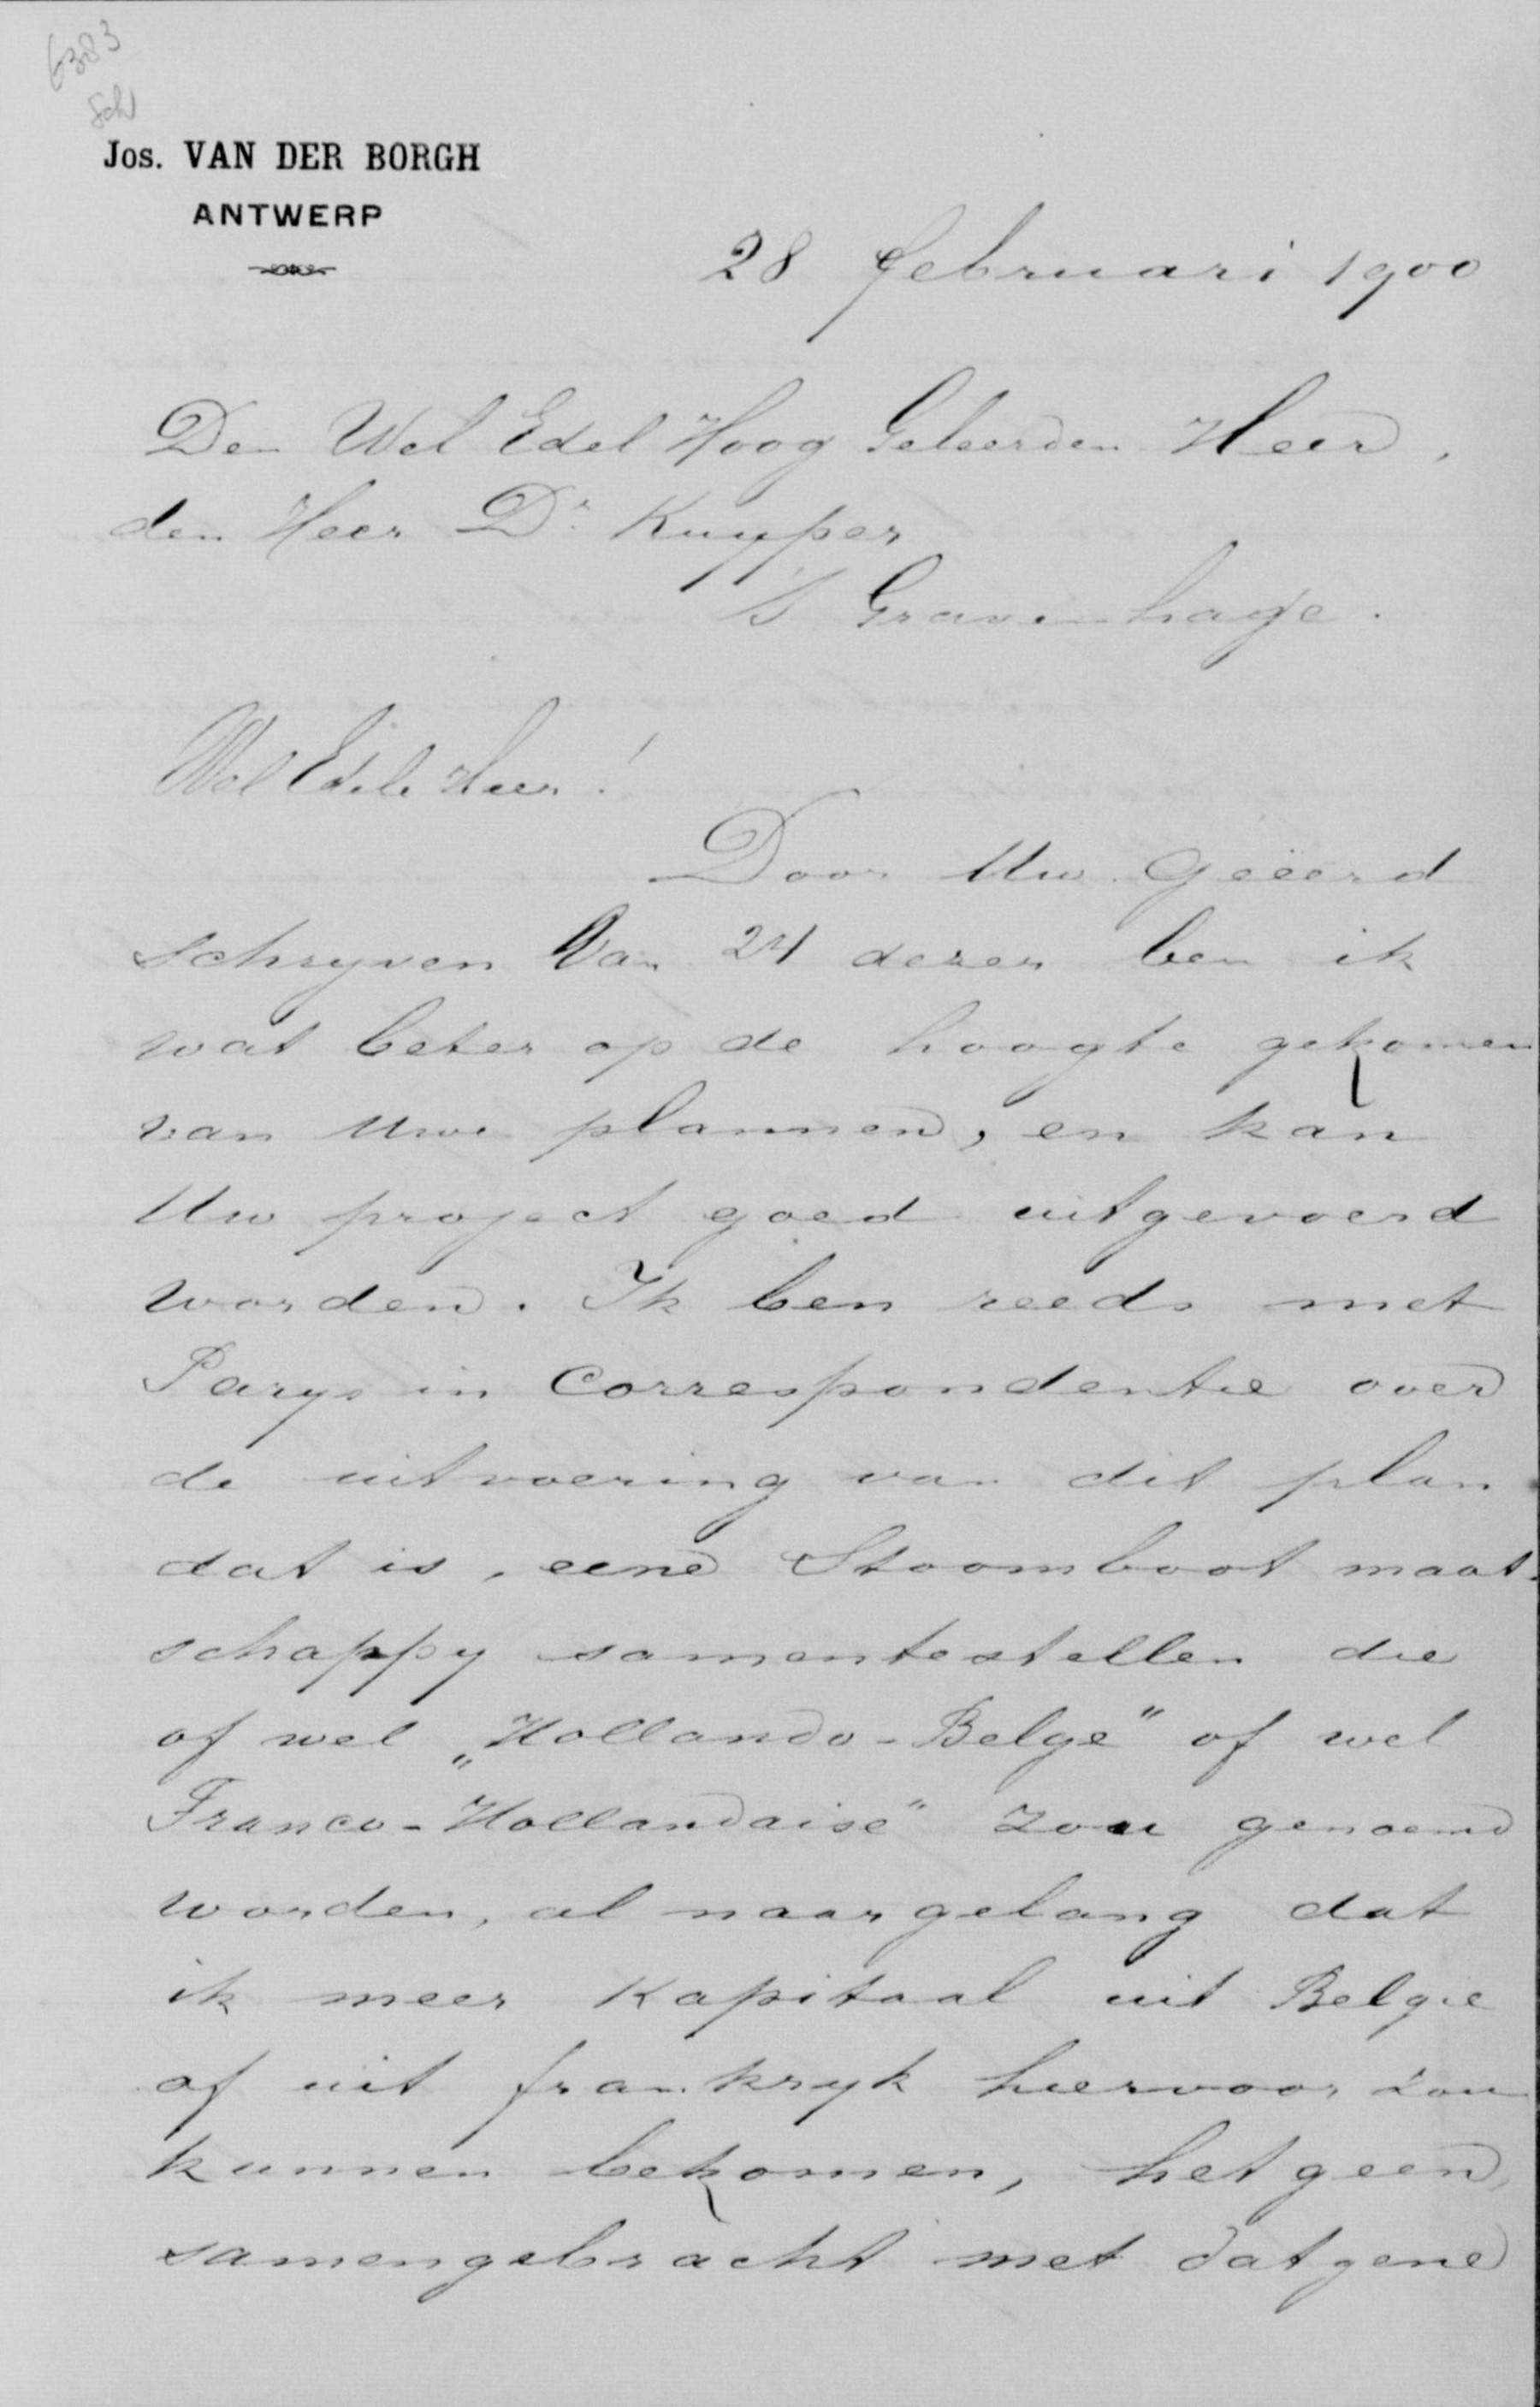 6383
Sch
Jos. VAN DER BORGH
ANTWERP
28 februari 1900
Den Wel Edel Hoog Geleerden Heer,
den Heer Dr Kuyper
's Gravenhage.
Wel Edele Heer!
Door Uw geëerd
schryven Van 24 dezer ben ik
wat beter op de hoogte gekomen
van Uwe plannen, en kan
Uw project goed uitgevoerd
worden. Ik ben reeds met
Parys in Correspondentie over
de uitvoering van dit plan
dat is, eene Stoomboot maat-
schappy samentestellen die
of wel „Hollando-Belge" of wel
Franco-Hollandaise" zou genoemd
worden, al naargelang dat
ik meer Kapitaal uit Belgie
of uit frankryk hiervoor zou
kunnen bekomen, hetgeen,
samengebracht met datgene